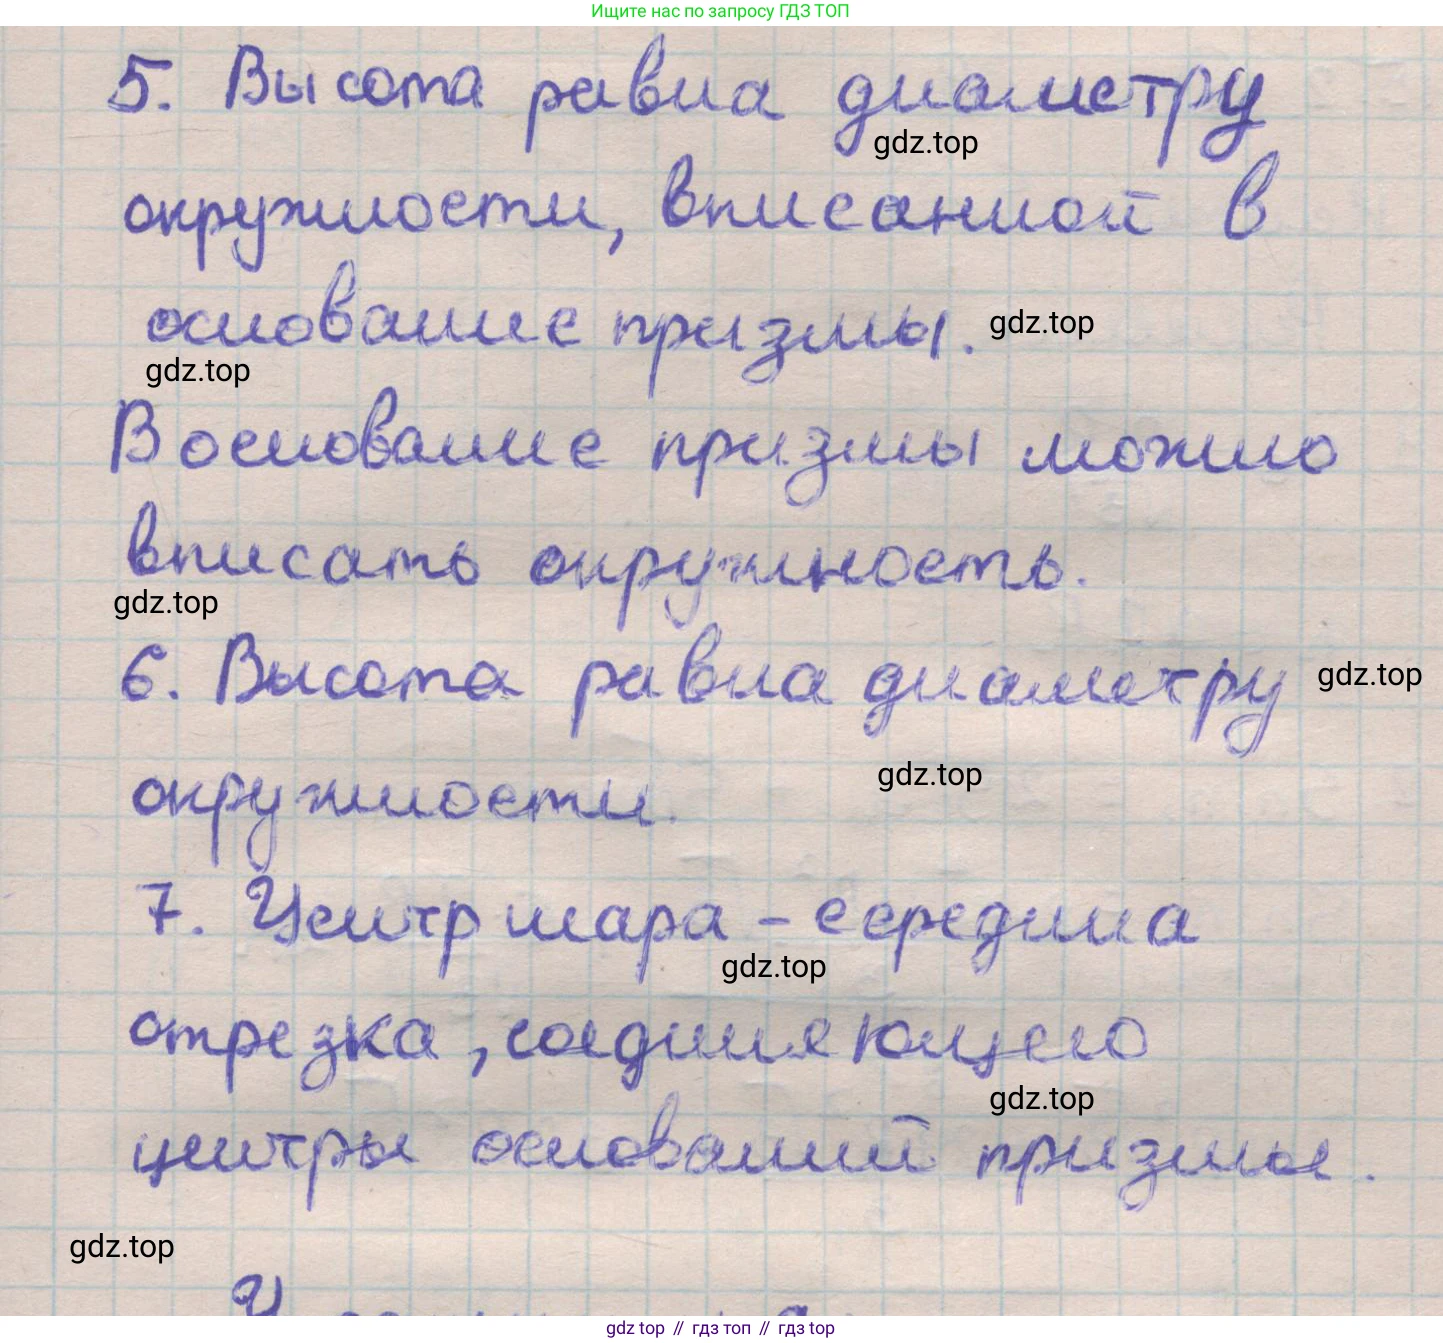 Ищите нас по запросу ГДЗ ТОП
5. Высота равна диаметру
gdz.top
окружности, вписанной в
основание призмы. gdz.top
gdz.top
В основание призмы можно
вписать окружность.
gdz.top
6. Высота равна диаметру gdz.top
gdz.top
окружности.
7. Центр шара - середина
gdz.top
отрезка, соединяющего
gdz.top
центры оснований призмы.
gdz.top
gdz top // гдз топ // гдз top